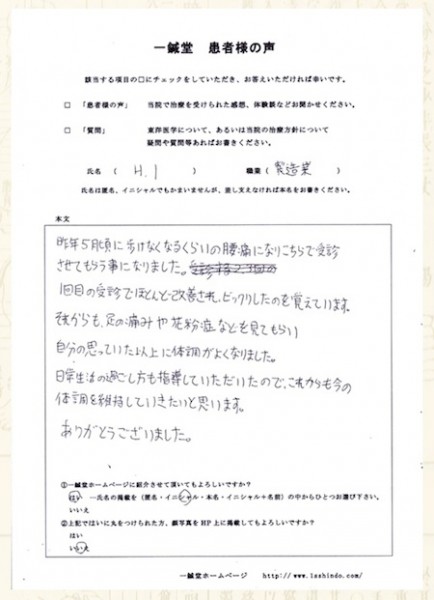 一鍼堂 患者様の声
該当する項目の□にチェックをしていただき、お答えいただければ幸いです。
□ 「患者様の声」 当院で治療を受けられた感想、体験談などお聞かせください。
□ 「質問」 東洋医学について、あるいは当院の治療方針について
疑問や質問等あればお書きください。
氏名 ( H.I ) 職業 ( 製造業 )
氏名は匿名、イニシャルでもかまいませんが、差し支えなければ本名をお書きください。
本文
昨年5月頃に歩けなくなるくらいの腰痛になりこちらで受診
させてもらう事になりました。
1回目の受診でほとんど改善され、ビックリしたのを覚えています。
それからも、足の痛みや花粉症などを見てもらい
自分の思っていた以上に体調がよくなりました。
日常生活の過ごし方も指導していただいたので、これからも今の
体調を維持していきたいと思います。
ありがとうございました。
①一鍼堂ホームページに紹介させて頂いてもよろしいですか?
はい ―氏名の掲載を(匿名・イニシャル・本名・イニシャル+名前)の中からひとつお選び下さい。
いいえ
②上記ではいに丸をつけられた方、顔写真をHP上に掲載してもよろしいですか?
はい
いいえ
一鍼堂ホームページ http://www.1sshindo.com/